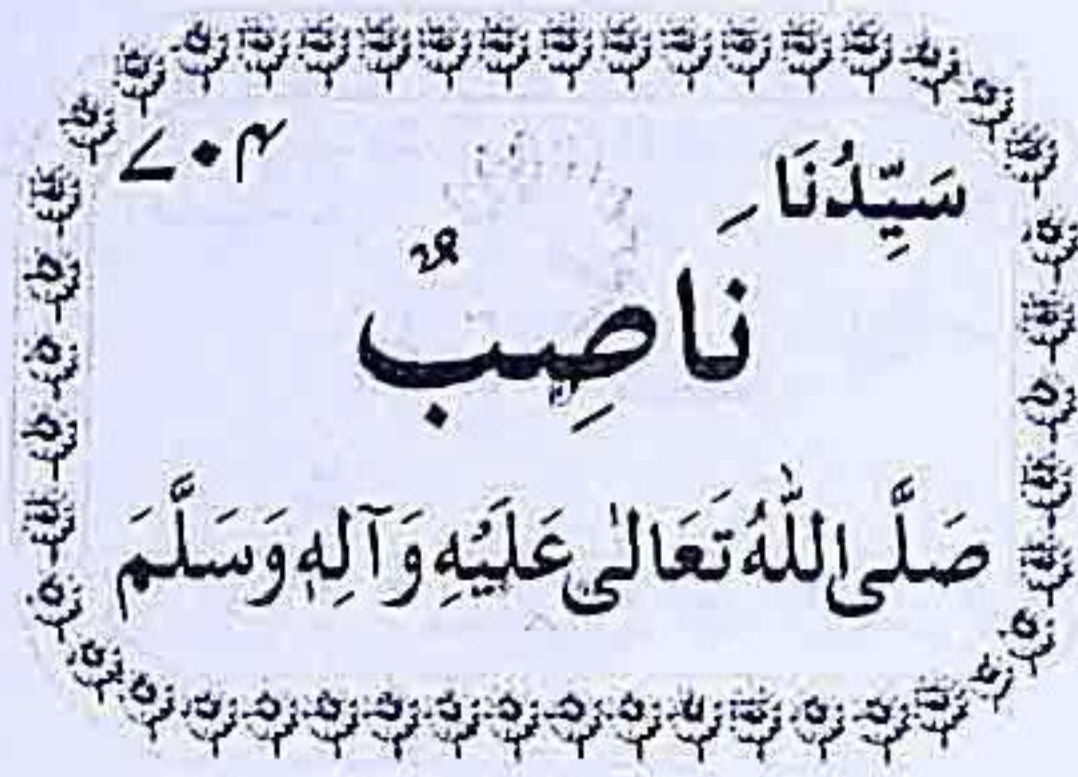 سَيِّدُنَا ۷۰۴
نَاصِبٌ
صَلَّى اللّٰهُ تَعَالٰى عَلَيْهِ وَآلِهٖ وَسَلَّمَ